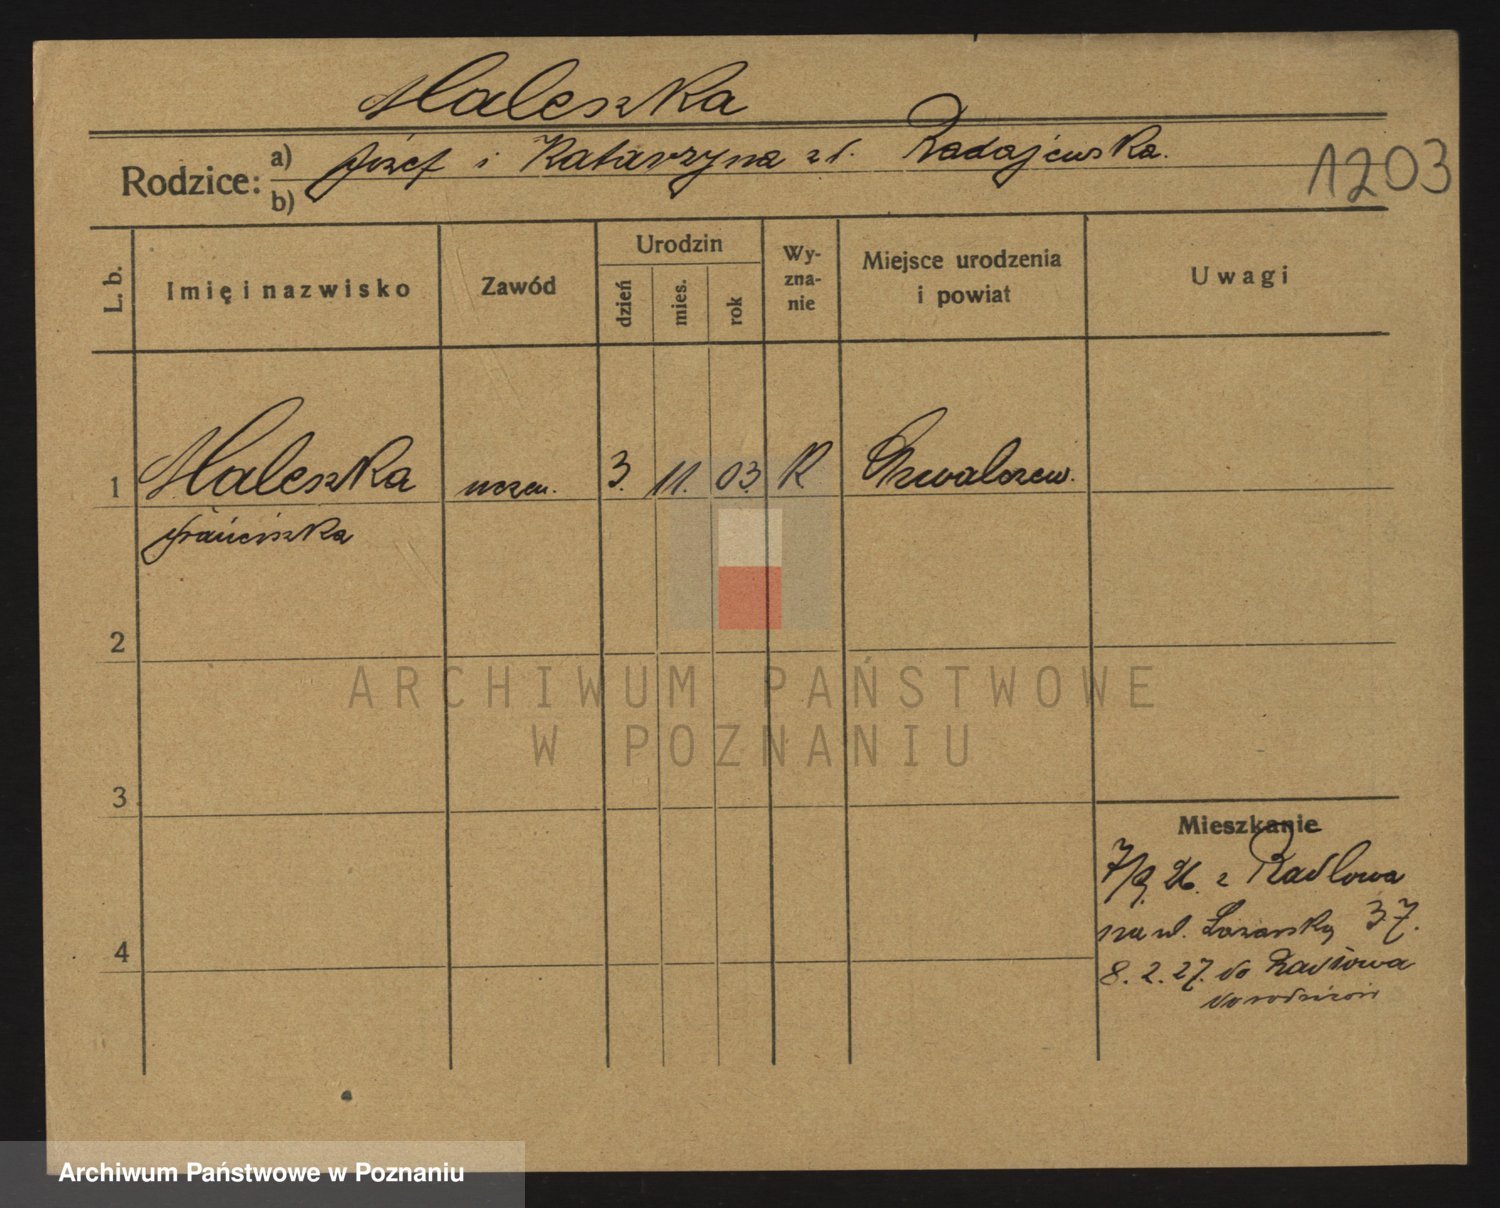 Maleszka
Rodzice: a) Józef i Katarzyna zd. Radajewska.
b)
1203
L. b.
Imię i nazwisko
Zawód
Urodzin
dzień
mies.
rok
Wy-
zna-
nie
Miejsce urodzenia
i powiat
Uwagi
1 Maleszka uczen. 3. 11. 03. R.
Franciszka
2
3
4
Mieszkanie
7/9. 26. z Radłowa
na ul. Łazarską 37.
8. 2. 27. do Radłowa
do rodziców
ARCHIWUM PAŃSTWOWE
W POZNANIU
Archiwum Państwowe w Poznaniu